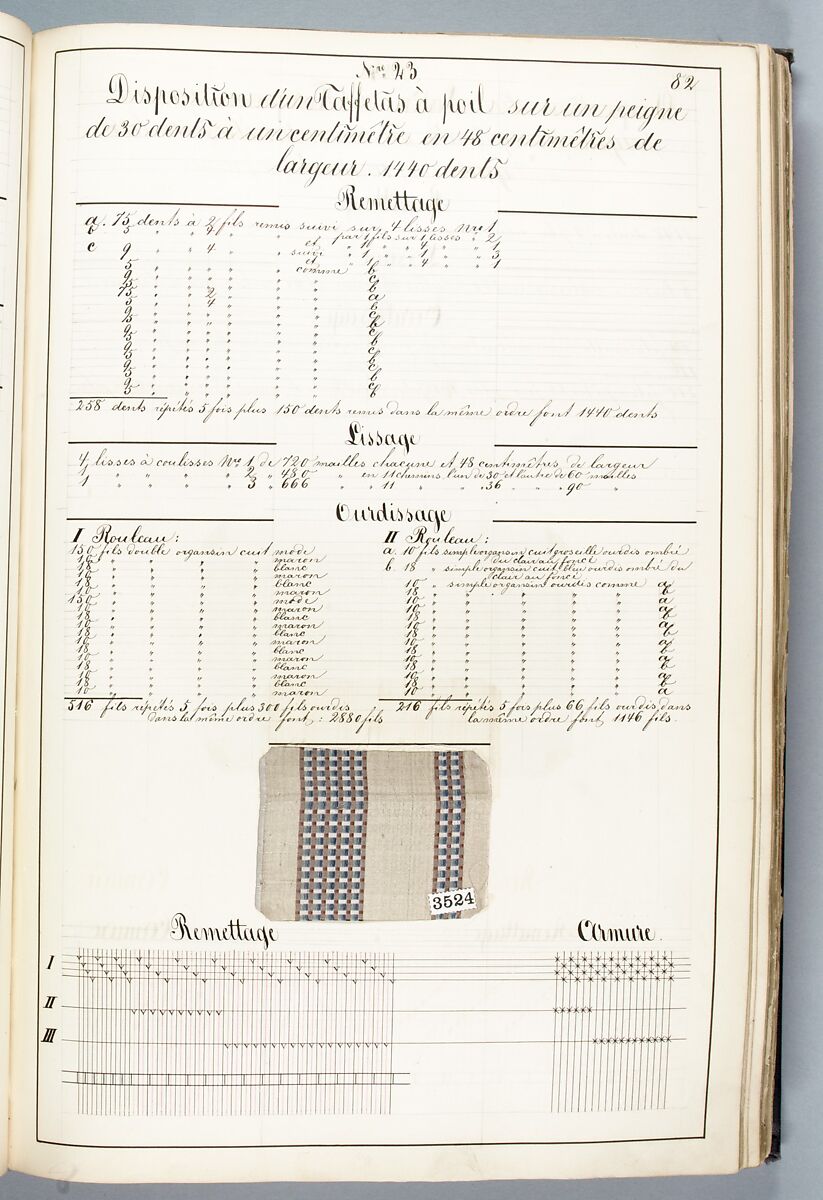 Nro 23
82
Disposition d'un Taffetas à poil sur un peigne
de 30 dents à un centimêtre en 48 centimêtres de
largeur. 1440 dents
Remettage
a. 75 dents à 2 fils remis suivi sur 4 lisses Nro 1
b 5 " " 4 " " et par 1 fil sur 1 lisses " 2
c 9 " " 4 " " suivi " 1 " " 4 " " 1
et " 1 " " 1 " " 3
5 " " " " " comme b
9 " " " " " " c
5 " " " " " " b
75 " " 2 " " " a
5 " " 4 " " " b
9 " " " " " " c
5 " " " " " " b
9 " " " " " " c
5 " " " " " " b
9 " " " " " " c
5 " " " " " " b
9 " " " " " " c
5 " " " " " " b
258 dents répétés 5 fois plus 150 dents remis dans la même ordre font 1440 dents
Lissage
4 lisses à coulisses Nro 1 de 720 mailles chacune et 48 centimêtres de largeur
1 " " " " 2 " 480 " en 11 chemins, l'un de 30 et l'autre de 60 mailles
1 " " " " 3 " 666 " " 11 " " " 36 " " " 90 "
Ourdissage
I Rouleau:
150 fils double organsin cuit mode
16 " " " " maron
18 " " " " blanc
16 " " " " maron
18 " " " " blanc
10 " " " " maron
150 " " " " mode
10 " " " " maron
18 " " " " blanc
16 " " " " maron
18 " " " " blanc
16 " " " " maron
18 " " " " blanc
16 " " " " maron
18 " " " " blanc
16 " " " " maron
18 " " " " blanc
10 " " " " maron
516 fils répétés 5 fois plus 300 fils ourdis
dans la même ordre font: 2880 fils
II Rouleau:
a. 10 fils simple organsin cuit groseille ourdis ombré
du clair au foncé
b. 18 " simple organsin cuit bleu ourdis ombré du
clair au foncé
10 " simple organsin ourdis comme a
18 " " " " " b
10 " " " " " a
10 " " " " " a
18 " " " " " b
10 " " " " " a
18 " " " " " b
10 " " " " " a
18 " " " " " b
10 " " " " " a
18 " " " " " b
10 " " " " " a
216 fils répétés 5 fois plus 66 fils ourdis dans
la même ordre font 1146 fils.
3524
Remettage
Armure.
I
II
III